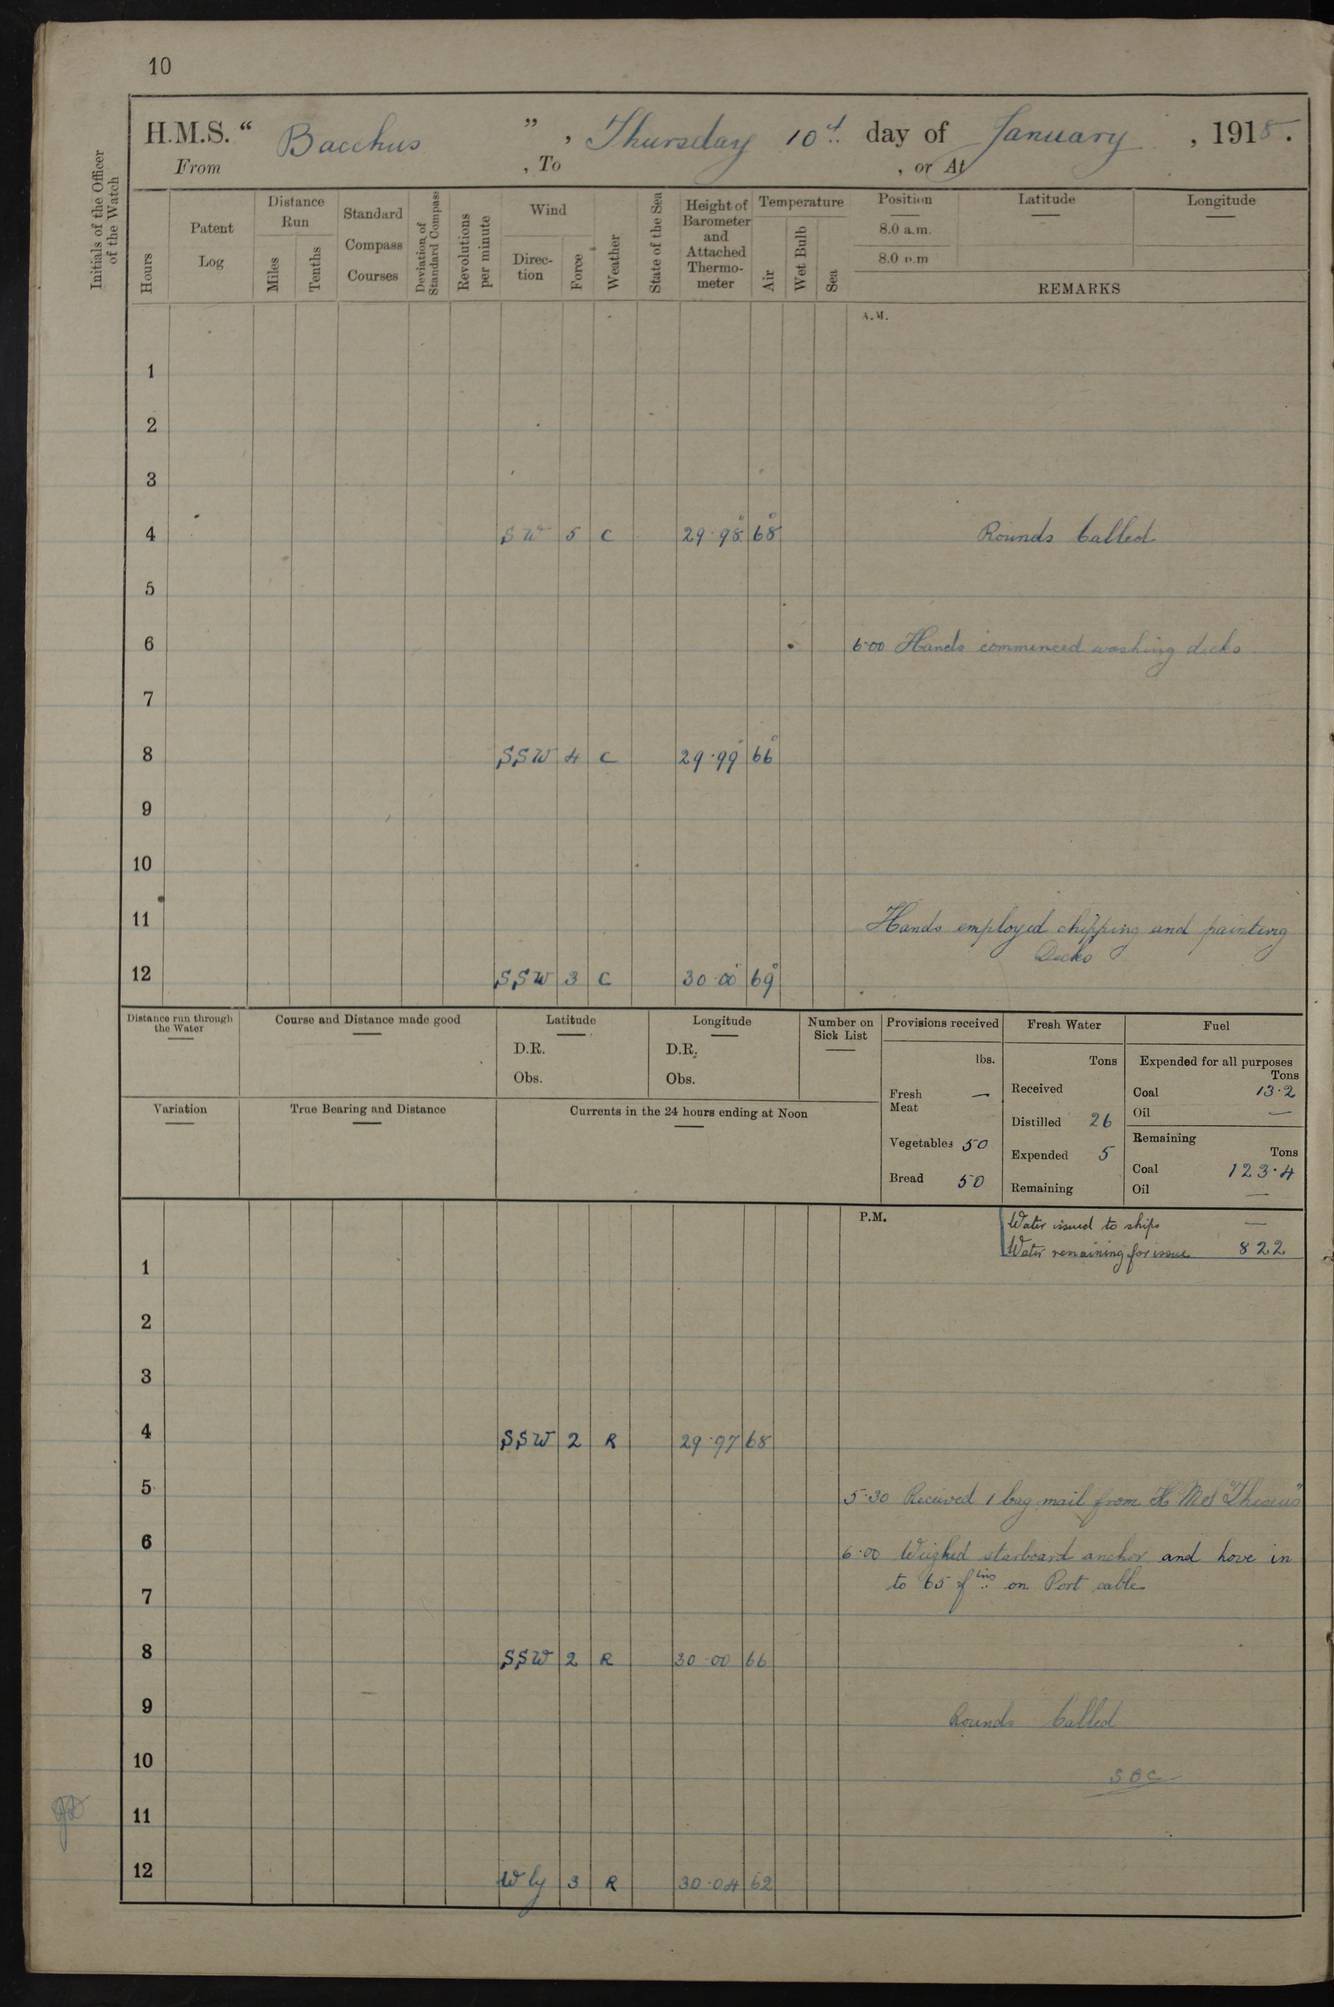 10
H.M.S. " Bacchus ", Thursday 10th day of January, 1918.
From , To , or At
Initials of the Officer of the Watch
Hours
Patent Log
Distance Run
Miles
Tenths
Standard Compass Courses
Deviation of Standard Compass
Revolutions per minute
Wind
Direction
Force
Weather
State of the Sea
Height of Barometer and Attached Thermometer
Temperature
Air
Wet Bulb
Sea
Position
8.0 a.m.
8.0 p.m
Latitude
Longitude
REMARKS
A.M.
1
2
3
4 SW 5 C 29·98 68° Rounds Called
5
6 6·00 Hands commenced washing decks
7
8 SSW 4 C 29·99 66°
9
10
11 Hands employed chipping and painting
Decks
12 SSW 3 C 30·00 69°
Distance run through the Water
Course and Distance made good
Latitude
D.R.
Obs.
Longitude
D.R.
Obs.
Number on Sick List
Provisions received
lbs.
Fresh Meat —
Vegetables 50
Bread 50
Fresh Water
Tons
Received
Distilled 26
Expended 5
Remaining
Fuel
Expended for all purposes
Tons
Coal 13·2
Oil —
Remaining
Tons
Coal 123·4
Oil —
Variation
True Bearing and Distance
Currents in the 24 hours ending at Noon
P.M.
Water issued to ships —
Water remaining for issue 822
1
2
3
4 SSW 2 R 29·97 68
5 5·30 Received 1 bag mail from H.M.S "Theseus"
6 6·00 Weighed starboard anchor and hove in
7 to 65 fms on Port cable
8 SSW 2 R 30·00 66
9 Rounds Called
10 SBC
11
12 Wly 3 R 30·04 62